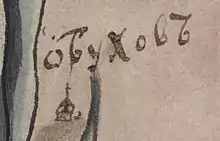 Обуховъ